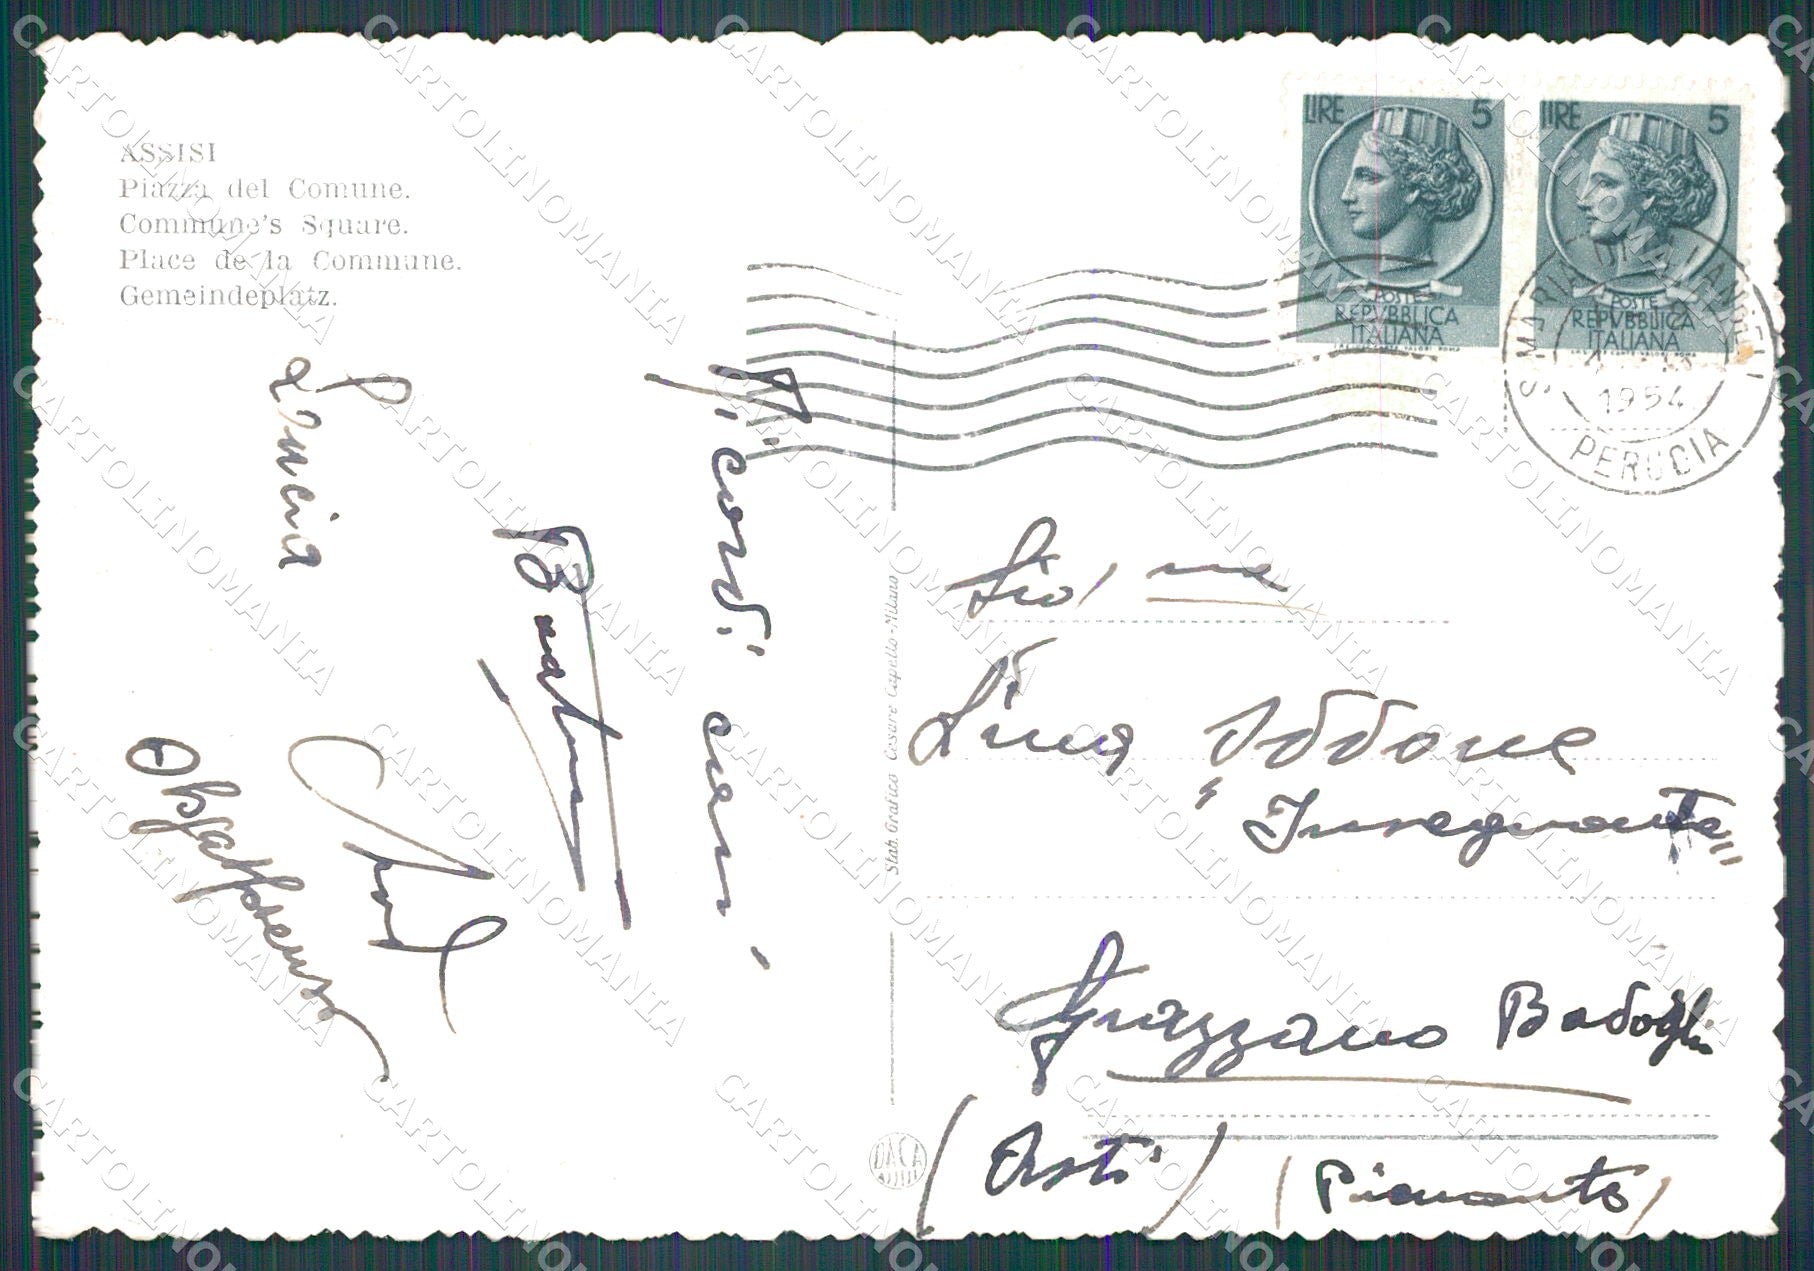 ASSISI
Piazza del Comune.
Commune's Square.
Place de la Commune.
Gemeindeplatz.
LIRE 5
POSTE
REPVBBLICA
ITALIANA
LIRE 5
POSTE
REPVBBLICA
ITALIANA
S. MARIA DEGLI ANGELI
1954
PERUGIA
Ricordi cari
Lucia
Stab. Grafico Cesare Capello - Milano
Lina Oddone
"Insegnante"
Grazzano Badoglio
(Asti) (Piemonte)
DACA
CARTOLINOMANIA